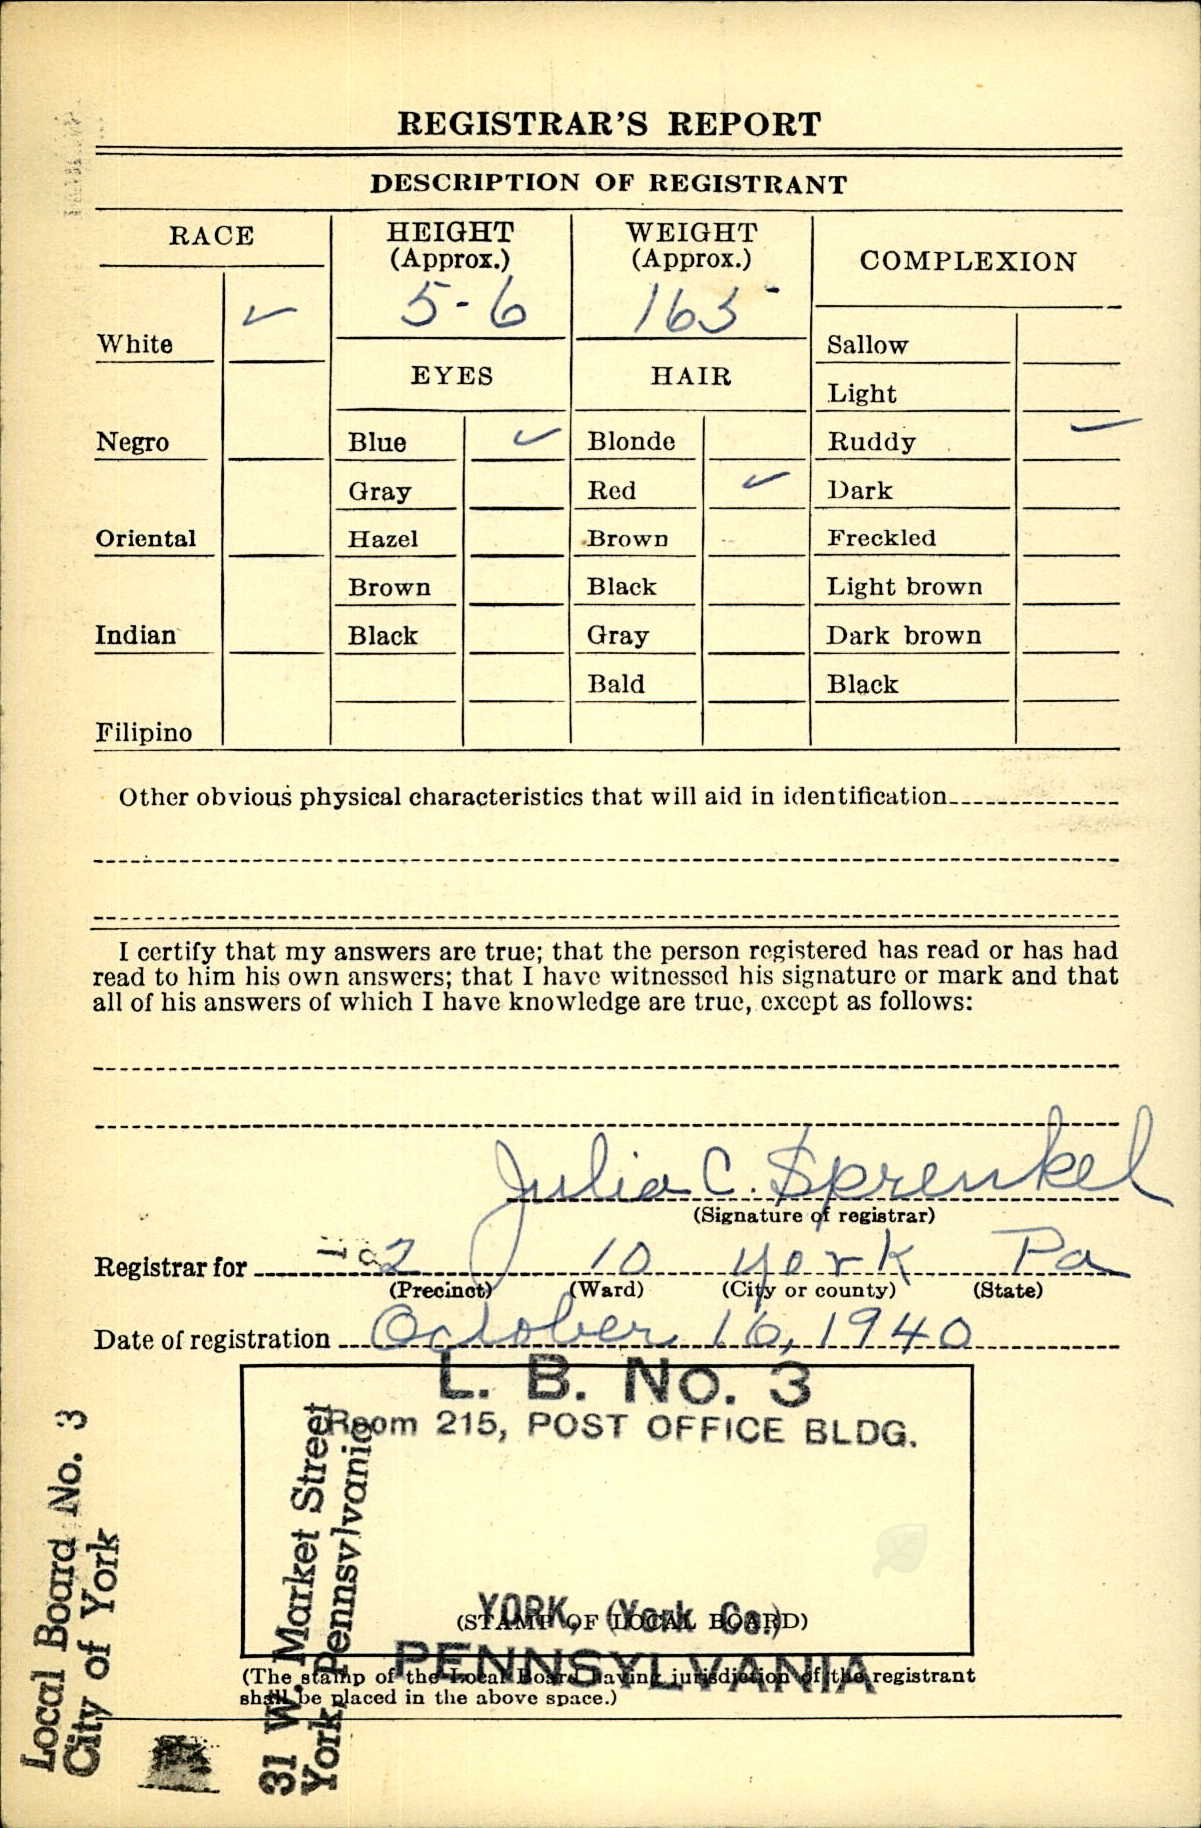 REGISTRAR'S REPORT
DESCRIPTION OF REGISTRANT
RACE
White ✓
Negro
Oriental
Indian
Filipino
HEIGHT
(Approx.)
5-6
WEIGHT
(Approx.)
165
EYES
Blue ✓
Gray
Hazel
Brown
Black
HAIR
Blonde
Red ✓
Brown
Black
Gray
Bald
COMPLEXION
Sallow
Light
Ruddy ✓
Dark
Freckled
Light brown
Dark brown
Black
Other obvious physical characteristics that will aid in identification
I certify that my answers are true; that the person registered has read or has had
read to him his own answers; that I have witnessed his signature or mark and that
all of his answers of which I have knowledge are true, except as follows:
Julia C. Sprenkel
(Signature of registrar)
Registrar for 2 10 York Pa
(Precinct) (Ward) (City or county) (State)
Date of registration October 16, 1940
L. B. No. 3
Room 215, POST OFFICE BLDG.
YORK, (York Co.)
PENNSYLVANIA
(STAMP OF LOCAL BOARD)
(The stamp of the Local Board having jurisdiction of the registrant
shall be placed in the above space.)
Local Board No. 3
City of York
31 W. Market Street
York, Pennsylvania